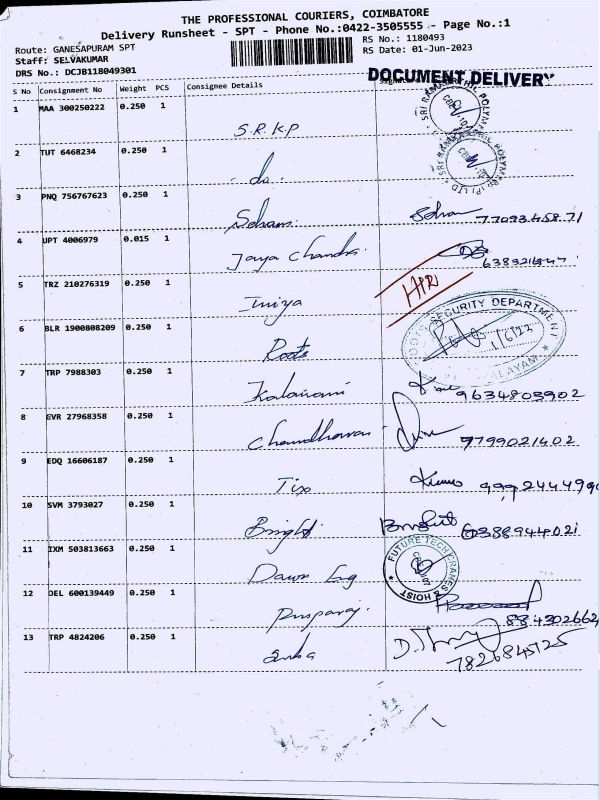 THE PROFESSIONAL COURIERS, COIMBATORE
Delivery Runsheet - SPT - Phone No.:0422-3505555 - Page No.:1
Route: GANESAPURAM SPT
RS No.: 1180493
Staff: SELVAKUMAR
RS Date: 01-Jun-2023
DRS No.: DCJB118049301
DOCUMENT DELIVERY
S No Consignment No Weight PCS Consignee Details
1 MAA 300250222 0.250 1
S.R.K.P
2 TUT 6468234 0.250 1
do.
3 PNQ 756767623 0.250 1
4 UPT 4006979 0.015 1
Jaya Chandra.
5 TRZ 210276319 0.250 1
Iniya
6 BLR 1900808209 0.250 1
Roots
SECURITY DEPARTMENT
7 TRP 7988303 0.250 1
9634803902
8 GVR 27968358 0.250 1
9799021402
9 EDQ 16606187 0.250 1
10 SVM 3793027 0.250 1
Bright
6388944021
11 IXM 503813663 0.250 1
Dawn Eg
FUTURE TECH CRANES & HOIST
12 DEL 600139449 0.250 1
884302662
13 TRP 4824206 0.250 1
7826845125